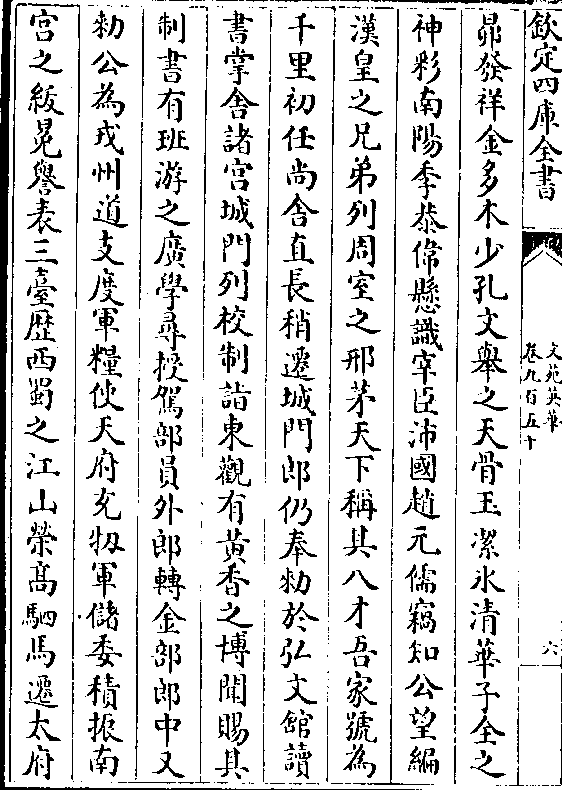 欽定四庫全書
文苑英華
卷九百五十
六
昴發祥金多木少孔文舉之天骨玉潔氷清華子全之
神彩南陽季恭偹懸識宰臣沛國趙元儒竊知公望編
漢皇之兄弟列周室之邢茅天下稱其八才吾家號為
千里初任尚舎直長稍遷城門郎仍奉勑於弘文館讀
書掌舎諸宫城門列校制詣東觀有黄香之博聞賜其
制書有班游之廣學尋授駕部員外郎轉金部郎中又
勑公為戎州道支度軍糧使天府充牣軍儲委積振南
宫之紱冕譽表三臺歴西蜀之江山榮髙駟馬遷太府